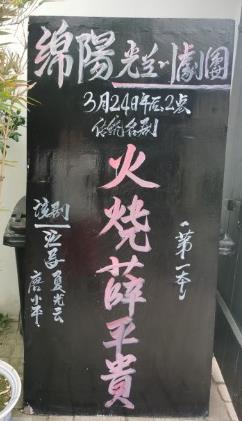 綿陽 光公川劇團
3月24日午后2点
传统名剧
火烧薛平貴
《第一本》
该剧
夏光云
唐小平